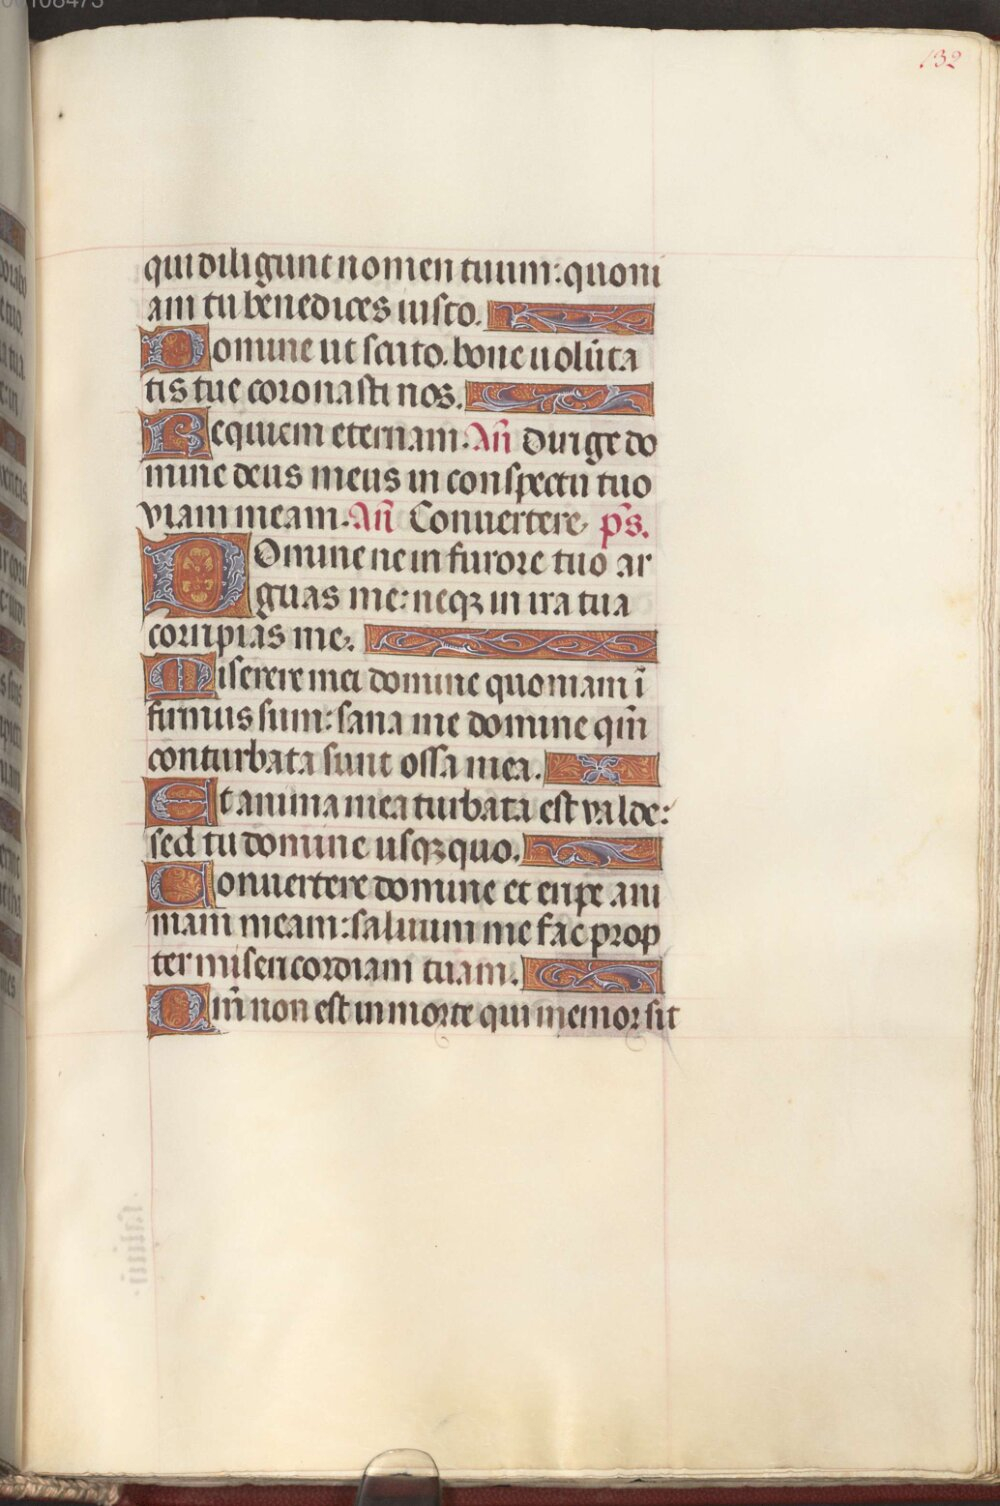 132
qui diligunt nomen tuum: quoni
am tu benedices iusto.
Domine ut scuto. bone uolũta
tis tue coronasti nos.
Requiem eternam. Añ Dirige do
mine deus meus in conspectu tuo
viam meam. Añ Conuertere, p̃s.
Domine ne in furore tuo ar
guas me: neqꝫ in ira tua
corripias me.
Miserere mei domine quoniam ĩ
firmus sum: sana me domine qm̃
conturbata sunt ossa mea.
Et anima mea turbata est valde:
sed tu domine usqꝫ quo.
Conuertere domine et eripe ani
mam meam: saluum me fac prop
ter misericordiam tuam.
Qm̃ non est in morte qui memor sit